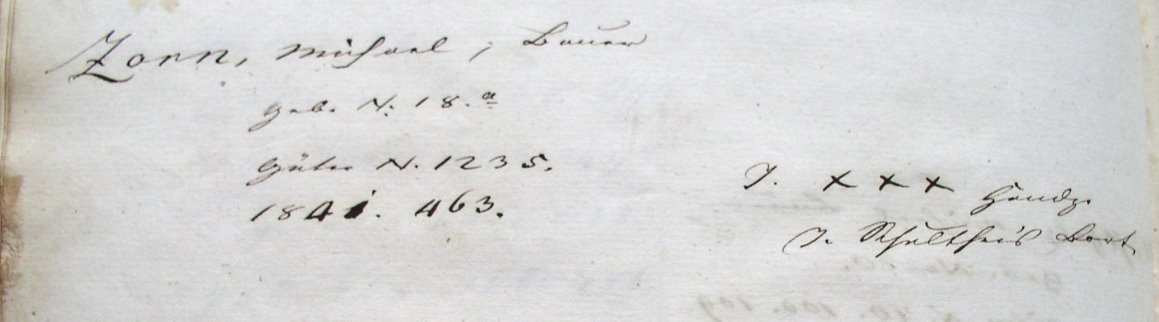 Zorn, Michael, Bauer
Geb. N. 18.a
Güter N. 1235.
1841. 463.
T. XXX Handz.
T. Schultheis Bort